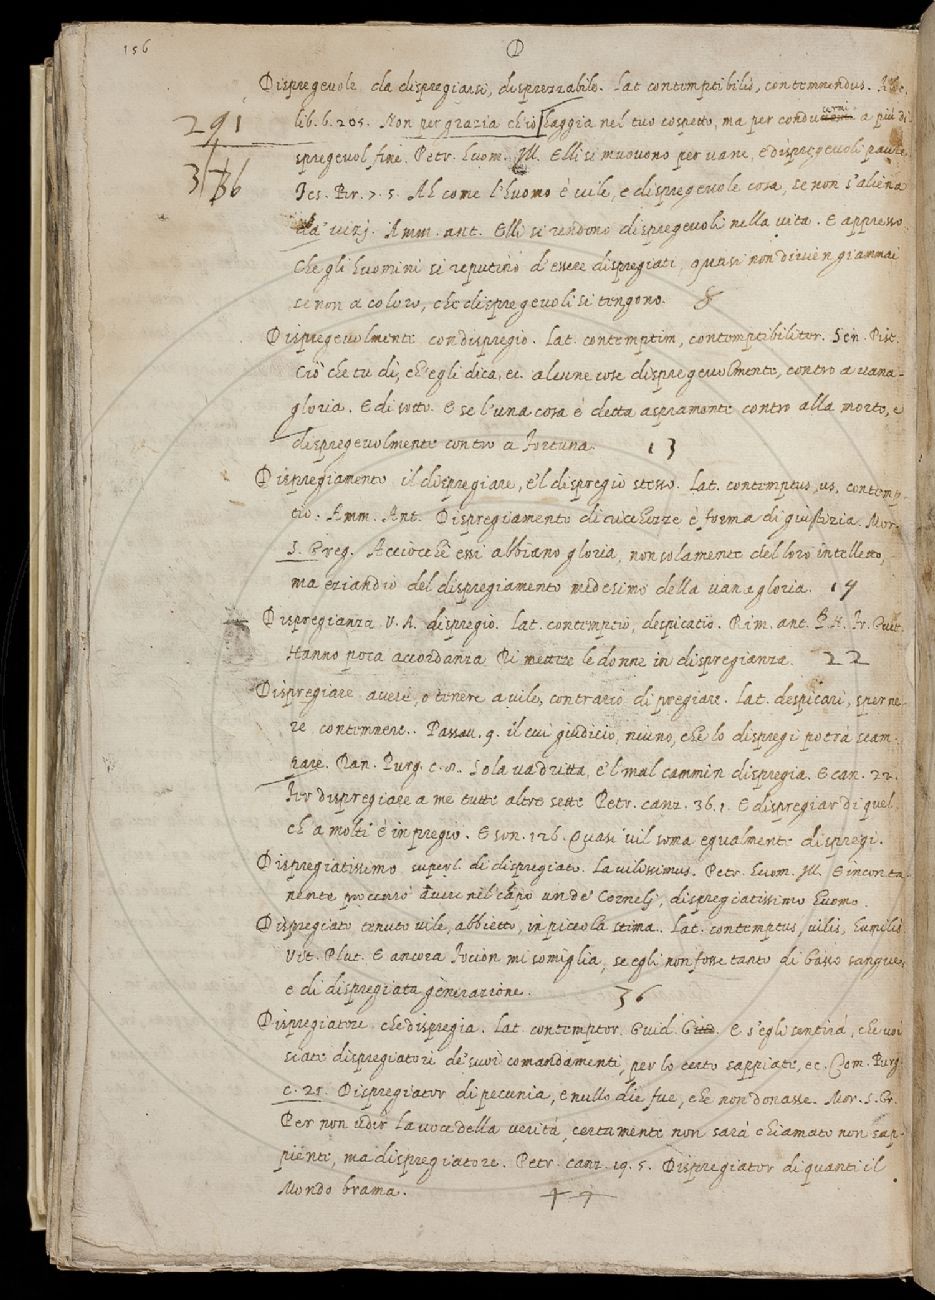 156
D
Dispregevole da dispregiarsi, disprezzabile. Lat. contemptibilis, contemnendus.
291
lib. 6. 205. Non per grazia ch'io haggia nel tuo cospetto, ma per condu cermi a più di
3136
spregevol fine. Petr. huom. Ill. Elli si muovono per vane, e dispregevoli paure.
Tes. Br. 7. 5. Ah come l'huomo è vile, e dispregevole cosa, se non s'aliena
da' vizj. Amm. ant. Elli si rendono dispregevoli nella vita. E appresso
Che gli huomini si reputino d'essere dispregiati, quasi non divien giammai
se non a coloro, che dispregevoli si tengono. 8
Dispregevolmente con dispregio. Lat. contemptim, contemptibiliter. Sen. Pist.
Ciò che tu di, ch'egli dica, ec. alcune cose dispregevolmente, contro a vana-
gloria. E di sotto. E se l'una cosa è detta aspramente contro alla morte, e
dispregevolmente contro a Fortuna. 13
Dispregiamento il dispregiare, e'l dispregio stesso. Lat. contemptus, us, contemp-
tio. Amm. Ant. Dispregiamento di ricchezze è forma di giustizia. Mor.
S. Greg. Acciocchè essi abbiano gloria, non solamente del loro intelletto,
ma eziandio del dispregiamento medesimo della vana gloria. 19
Dispregianza V. A. dispregio. Lat. contemptio, despicatio. Rim. ant. P. N. Fr. Guit.
Hanno poca accordanza Di mettere le donne in dispregianza. 22
Dispregiare avere, o tenere a vile, contrario di pregiare. Lat. despicari, sperne-
re contemnere. Passav. 9. il cui giudicio, niuno, che lo dispregi potrà scam-
pare. Dan. Purg. c. 8. Sola va dritta, e'l mal cammin dispregia. E can. 22.
Fer dispregiare a me tutte altre sette Petr. canz. 36. 1. E dispregiar di quel,
ch'a molti è in pregio. E son. 126. Quasi vil soma egualmente dispregi.
Dispregiatissimo superl. di dispregiato. La. vilissimus. Petr. huom. Ill. E incontan-
nente procurò avere nel capo un de' Cornelj, dispregiatissimo huomo.
Dispregiato tenuto vile, abbietto, in piccola stima. Lat. contemptus, vilis, humilis
Vit. Plut. E ancora Focion mi somiglia, se egli non fosse tanto di basso sangue,
e di dispregiata generazione. 36
Dispregiatore che dispregia. Lat. contemptor. Guid. E s'egli sentirà, che voi
siate dispregiatori de' suoi comandamenti, per lo certo sappiate, ec. Com. Purg.
c. 21. Dispregiator di pecunia, e nullo die fue, che non donasse. Mor. S. Gr.
Per non udir la voce della verità, certamente non sarà chiamato non sap-
piente, ma dispregiatore. Petr. canz. 19. 5. Dispregiator di quanti il
Mondo brama. 44